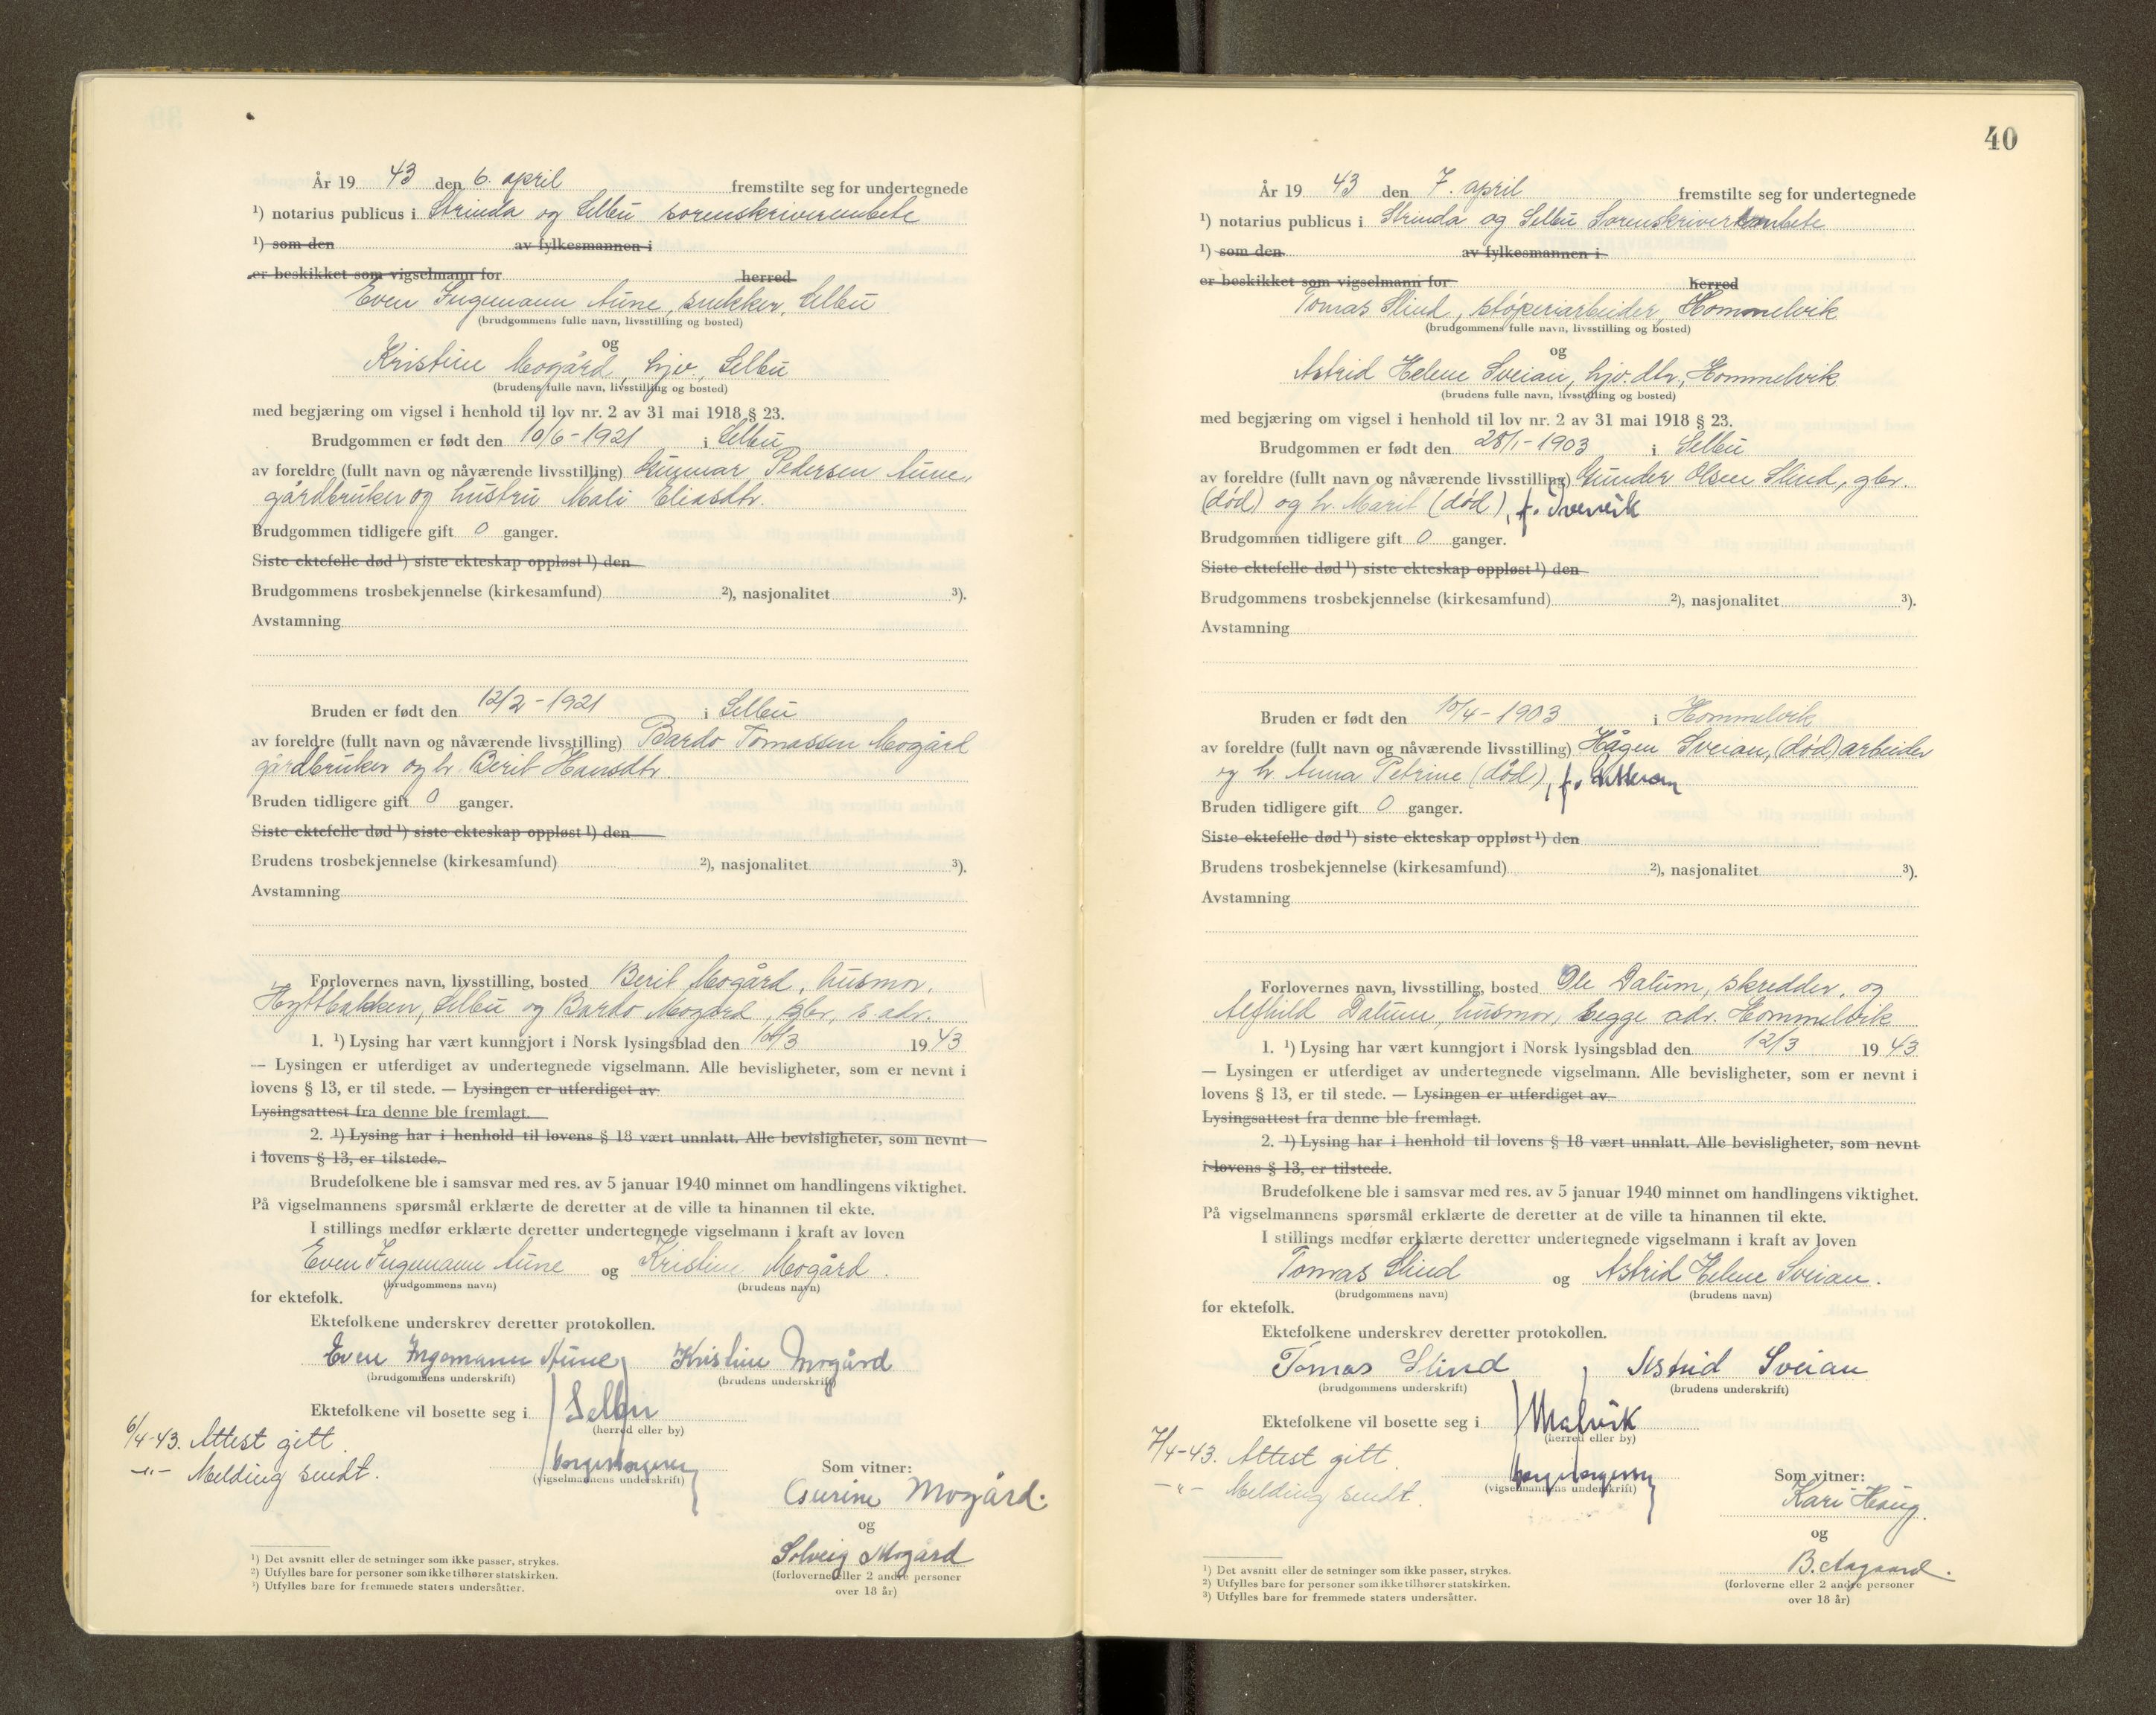 År 19 43 den 6. april fremstilte seg for undertegnede
¹) notarius publicus i Strinda og Selbu sorenskriverembete
¹) som den av fylkesmannen i
er beskikket som vigselmann for herred
Even Ingemann Aune, snekker, Selbu
(brudgommens fulle navn, livsstilling og bosted)
og
Kristine Mogård, hjv., Selbu
(brudens fulle navn, livsstilling og bosted)
med begjæring om vigsel i henhold til lov nr. 2 av 31 mai 1918 § 23.
Brudgommen er født den 10/6-1921 i Selbu
av foreldre (fullt navn og nåværende livsstilling) Gunnar Pedersen Aune,
gårdbruker og hustru Mali Eliasdtr.
Brudgommen tidligere gift 0 ganger.
Siste ektefelle død ¹) siste ekteskap oppløst ¹) den
Brudgommens trosbekjennelse (kirkesamfund) ²), nasjonalitet ³).
Avstamning
Bruden er født den 12/2-1921 i Selbu
av foreldre (fullt navn og nåværende livsstilling) Bardo Tomassen Mogård
gårdbruker og h. Berit Hansdtr.
Bruden tidligere gift 0 ganger.
Siste ektefelle død ¹) siste ekteskap oppløst ¹) den
Brudens trosbekjennelse (kirkesamfund) ²), nasjonalitet ³).
Avstamning
Forlovernes navn, livsstilling, bosted Berit Mogård, husmor,
Hyttbakken, Selbu og Bardo Mogård, gbr, s. adr.
1. ¹) Lysing har vært kunngjort i Norsk lysingsblad den /3 19 43
— Lysingen er utferdiget av undertegnede vigselmann. Alle bevisligheter, som er nevnt i
lovens § 13, er til stede. — Lysingen er utferdiget av
Lysingsattest fra denne ble fremlagt.
2. ¹) Lysing har i henhold til lovens § 18 vært unnlatt. Alle bevisligheter, som nevnt
i lovens § 13, er tilstede.
Brudefolkene ble i samsvar med res. av 5 januar 1940 minnet om handlingens viktighet.
På vigselmannens spørsmål erklærte de deretter at de ville ta hinannen til ekte.
I stillings medfør erklærte deretter undertegnede vigselmann i kraft av loven
Even Ingemann Aune og Kristine Mogård.
(brudgommens navn) (brudens navn)
for ektefolk.
Ektefolkene underskrev deretter protokollen.
Even Ingemann Aune, Kristine Mogård
(brudgommens underskrift) (brudens underskrift)
Ektefolkene vil bosette seg i Selbu
(herred eller by)
6/4-43. Attest gitt.
-"- Melding sendt.
(vigselmannens underskrift)
Som vitner:
Gurine Mogård.
og
Solveig Mogård
(forloverne eller 2 andre personer
over 18 år)
¹) Det avsnitt eller de setninger som ikke passer, strykes.
²) Utfylles bare for personer som ikke tilhører statskirken.
³) Utfylles bare for fremmede staters undersåtter.
40
År 19 43 den 7. april fremstilte seg for undertegnede
¹) notarius publicus i Strinda og Selbu Sorenskriverembete
¹) som den av fylkesmannen i
er beskikket som vigselmann for herred
Tomas Slind, støperiarbeider, Hommelvik
(brudgommens fulle navn, livsstilling og bosted)
og
Astrid Helene Sveian, hjv. dtr., Hommelvik
(brudens fulle navn, livsstilling og bosted)
med begjæring om vigsel i henhold til lov nr. 2 av 31 mai 1918 § 23.
Brudgommen er født den 28/1-1903 i Selbu
av foreldre (fullt navn og nåværende livsstilling) Gunder Olsen Slind, gbr.
(død) og h. Marit (død), f.
Brudgommen tidligere gift 0 ganger.
Siste ektefelle død ¹) siste ekteskap oppløst ¹) den
Brudgommens trosbekjennelse (kirkesamfund) ²), nasjonalitet ³).
Avstamning
Bruden er født den 10/4-1903 i Hommelvik
av foreldre (fullt navn og nåværende livsstilling) Hågen Sveian, (død) arbeider
og h. Anna Petrine (død), f.
Bruden tidligere gift 0 ganger.
Siste ektefelle død ¹) siste ekteskap oppløst ¹) den
Brudens trosbekjennelse (kirkesamfund) ²), nasjonalitet ³).
Avstamning
Forlovernes navn, livsstilling, bosted Ole Dalum, skredder, og
Alfhild Dalum, husmor, begge adr. Hommelvik
1. ¹) Lysing har vært kunngjort i Norsk lysingsblad den 12/3 19 43
— Lysingen er utferdiget av undertegnede vigselmann. Alle bevisligheter, som er nevnt i
lovens § 13, er til stede. — Lysingen er utferdiget av
Lysingsattest fra denne ble fremlagt.
2. ¹) Lysing har i henhold til lovens § 18 vært unnlatt. Alle bevisligheter, som nevnt
i lovens § 13, er tilstede.
Brudefolkene ble i samsvar med res. av 5 januar 1940 minnet om handlingens viktighet.
På vigselmannens spørsmål erklærte de deretter at de ville ta hinannen til ekte.
I stillings medfør erklærte deretter undertegnede vigselmann i kraft av loven
Tomas Slind og Astrid Helene Sveian.
(brudgommens navn) (brudens navn)
for ektefolk.
Ektefolkene underskrev deretter protokollen.
Tomas Slind, Astrid Sveian
(brudgommens underskrift) (brudens underskrift)
Ektefolkene vil bosette seg i Malvik
(herred eller by)
7/4-43. Attest gitt.
-"- Melding sendt.
(vigselmannens underskrift)
Som vitner:
Kari Haug.
og
B. Aagaard.
(forloverne eller 2 andre personer
over 18 år)
¹) Det avsnitt eller de setninger som ikke passer, strykes.
²) Utfylles bare for personer som ikke tilhører statskirken.
³) Utfylles bare for fremmede staters undersåtter.